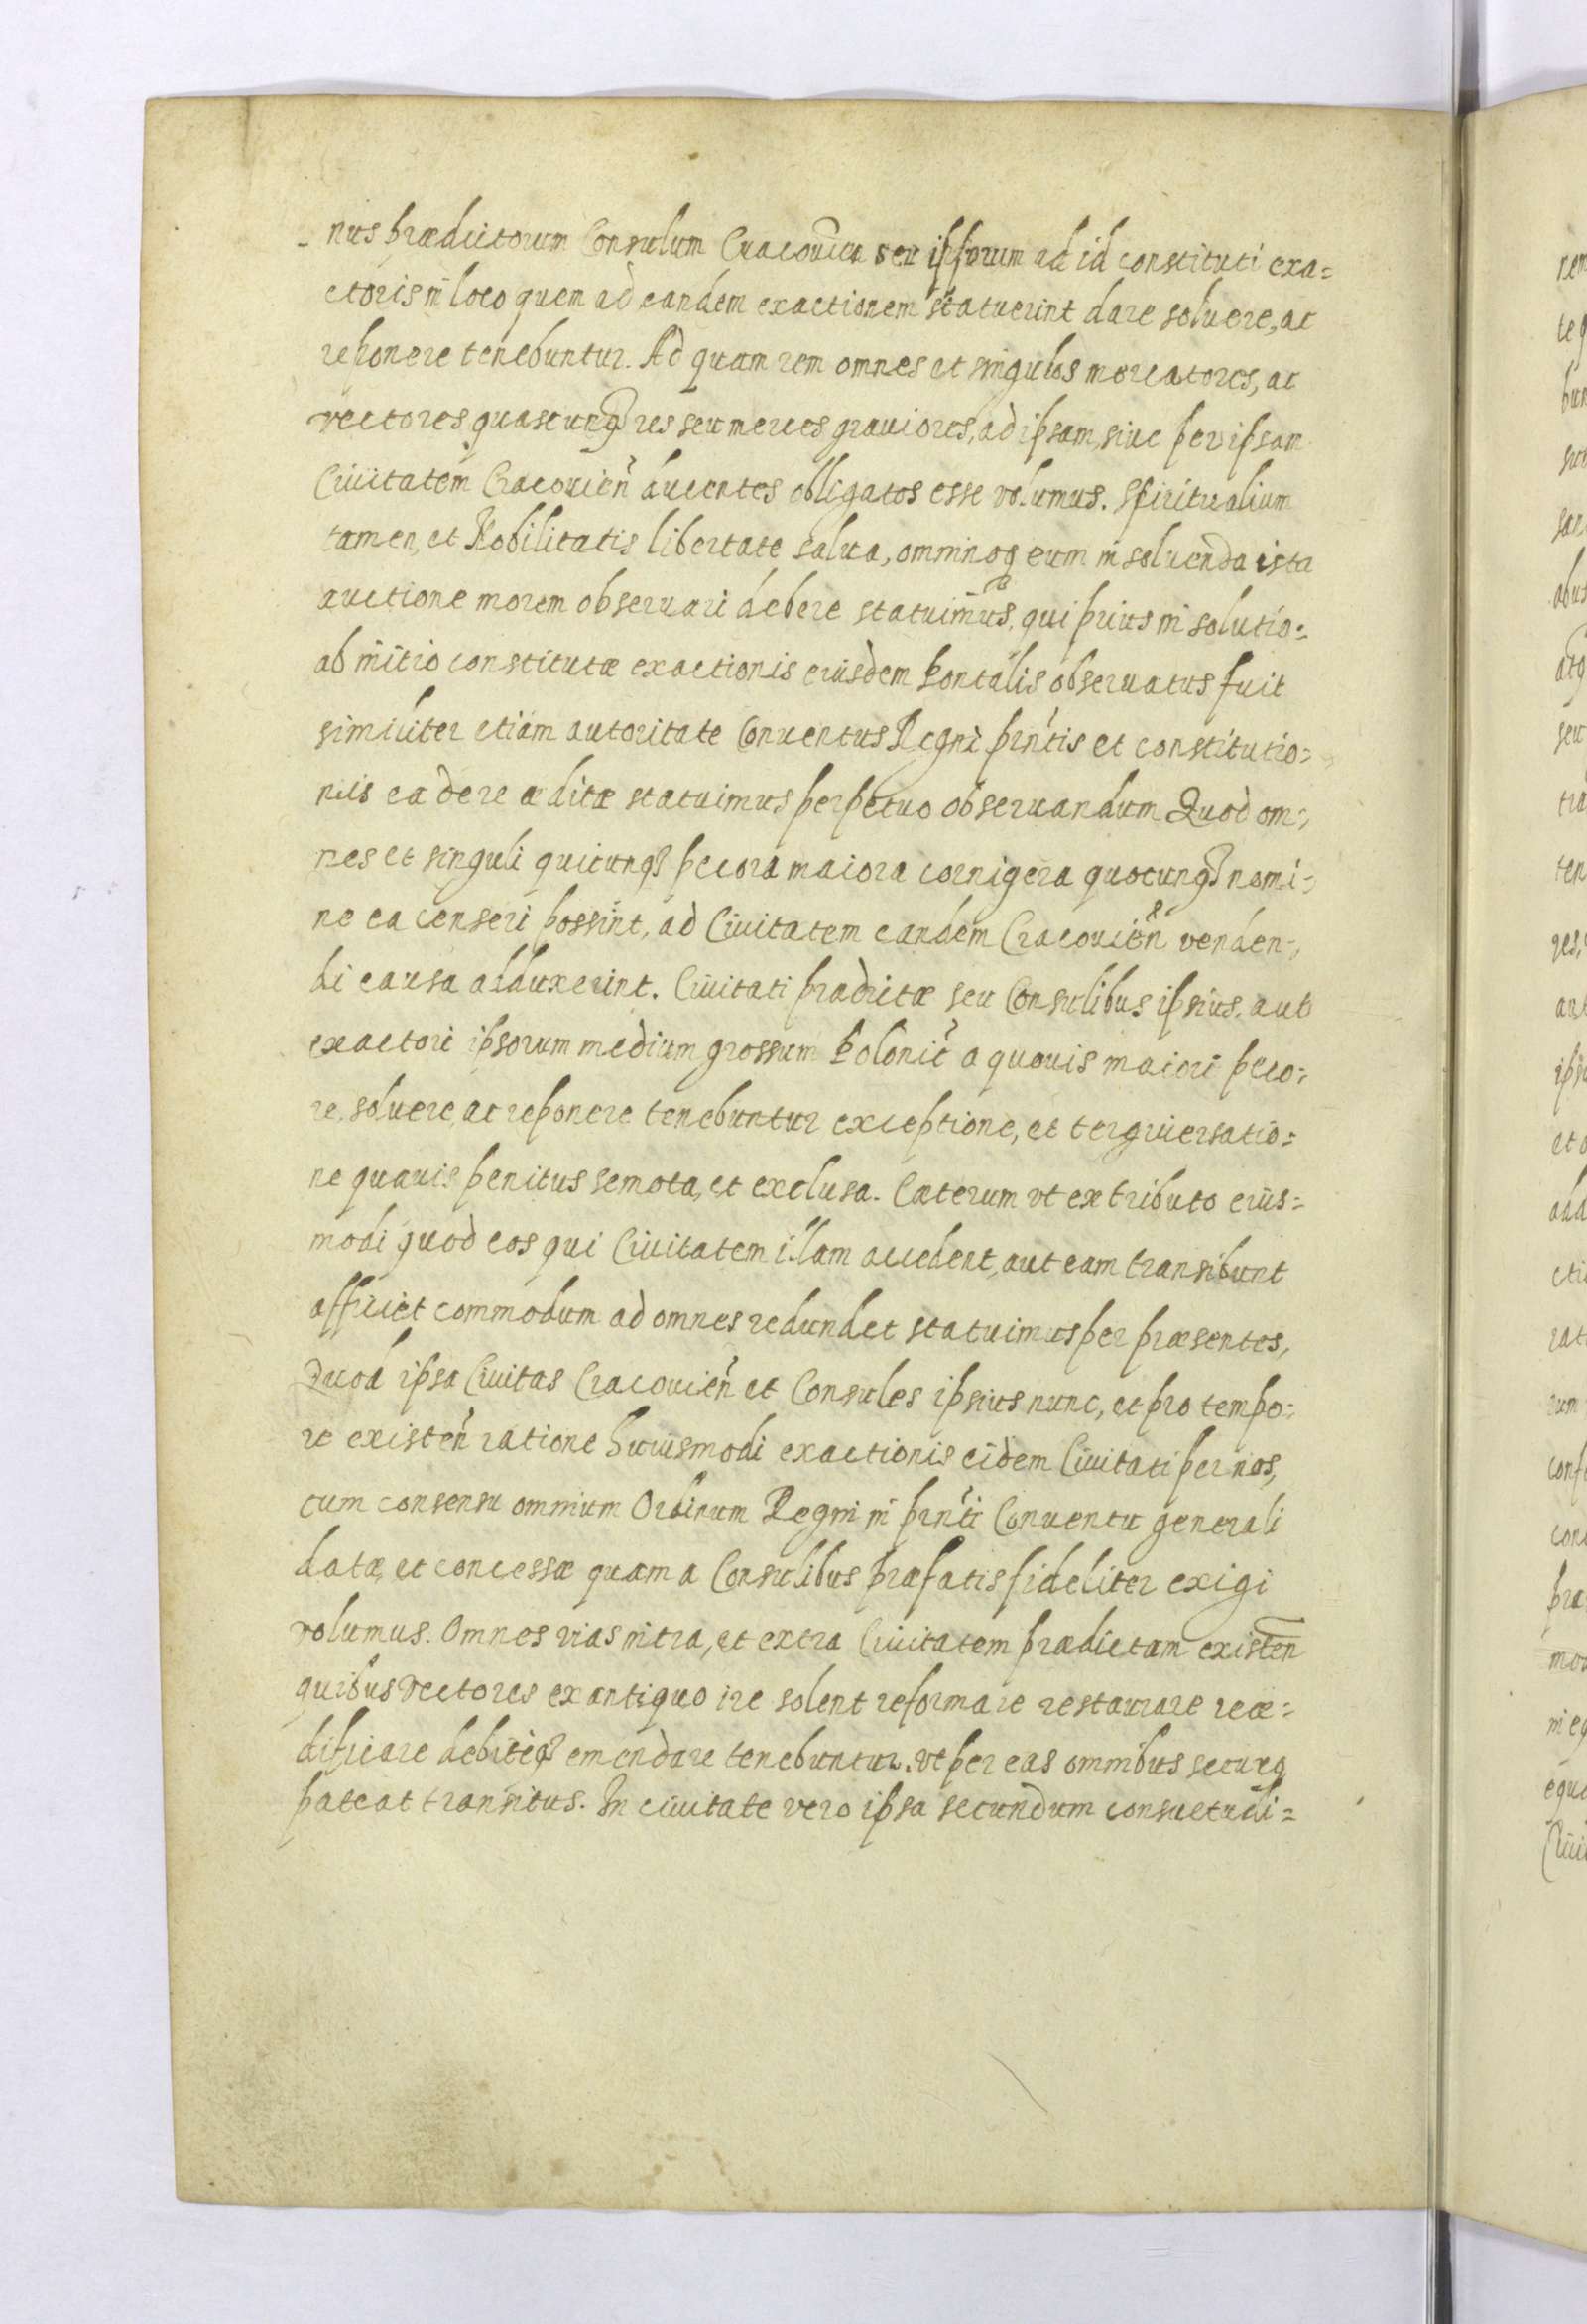 nus prædictorum Consulum Cracouien seu ipsorum ad id constituti exa=
ctoris in loco quem ad eandem exactionem statuerint dare soluere, ac
reponere tenebuntur. Ad quam rem omnes et singulos mercatores, ac
vectores quascunq3 res seu merces grauiores, ad ipsam, siue per ipsam
Ciuitatem Cracouien̄ ducentes obligatos esse volumus. Spiritualium
tamen, et Nobilitatis libertate salua, omninoq3 eum in soluenda ista
auctione morem obseruari debere statuimus, qui prius in solutio=
ab initio constitutæ exactionis eiusdem Pontalis obseruatus fuit
similiter etiam autoritate Conuentus Regni prn̄tis et constitutio=
nis ea de re æditæ statuimus perpetuo obseruandum Quod om=
nes et singuli quicunq3 pecora maiora cornigera quocunq3 nomi=
ne ea censeri possint, ad Ciuitatem eandem Cracouien̄ venden=
di causa adduxerint. Ciuitati prædictæ seu Consulibus ipsius, aut
exactori ipsorum medium grossum Polonic̄ a quouis maiori peco=
re, soluere, ac reponere tenebuntur exceptione, et tergiuersatio=
ne quauis penitus semota, et exclusa. Cæterum vt ex tributo eius=
modi quod eos qui Ciuitatem illam accedent, aut eam transibunt
afficiet commodum ad omnes redundet statuimus per præsentes,
Quod ipsa Ciuitas Cracouien̄ et Consules ipsius nunc, et pro tempo=
re existen̄ ratione huiusmodi exactionis eidem Ciuitati per nos,
cum consensu omnium Ordinum Regni in prn̄ti Conuentu generali
datæ, et concessæ quam a Consulibus præfatis fideliter exigi
volumus. Omnes vias intra, et extra Ciuitatem prædictam existen̄
quibus vectores ex antiquo ire solent reformare restaurare reæ=
dificare debiteq3 emendare tenebuntur. vt per eas omnibus securq
pateat transitus. In ciuitate vero ipsa secundum consuetudi=